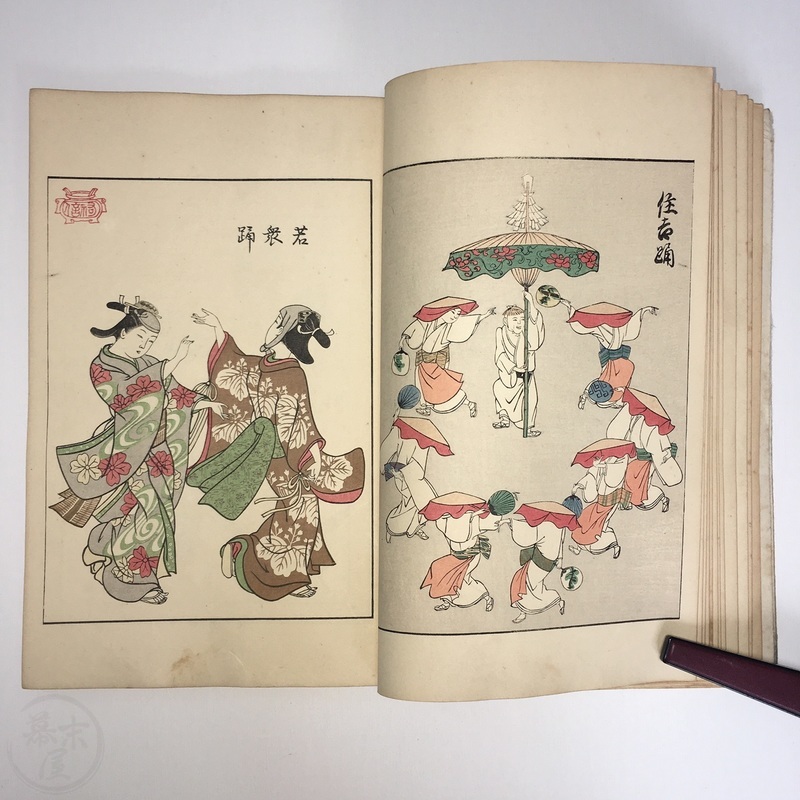 住吉踊
若衆踊
幕末屋